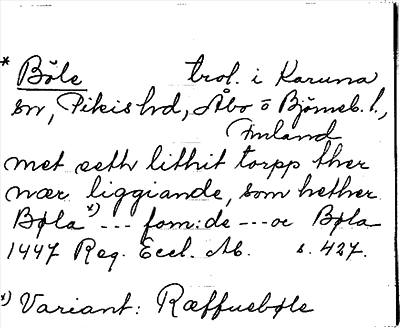 * Böle trol. i Karuna
sn, Pikis hd, Åbo o Björneb. l.,
Finland
met eeth lithit torpp ther
nær liggiande, som hether
Bøla *) --- fom:de --- oc Bøla
1447 Reg. Eccl. Ab. s. 427.
*) Variant: Ræffuebøle